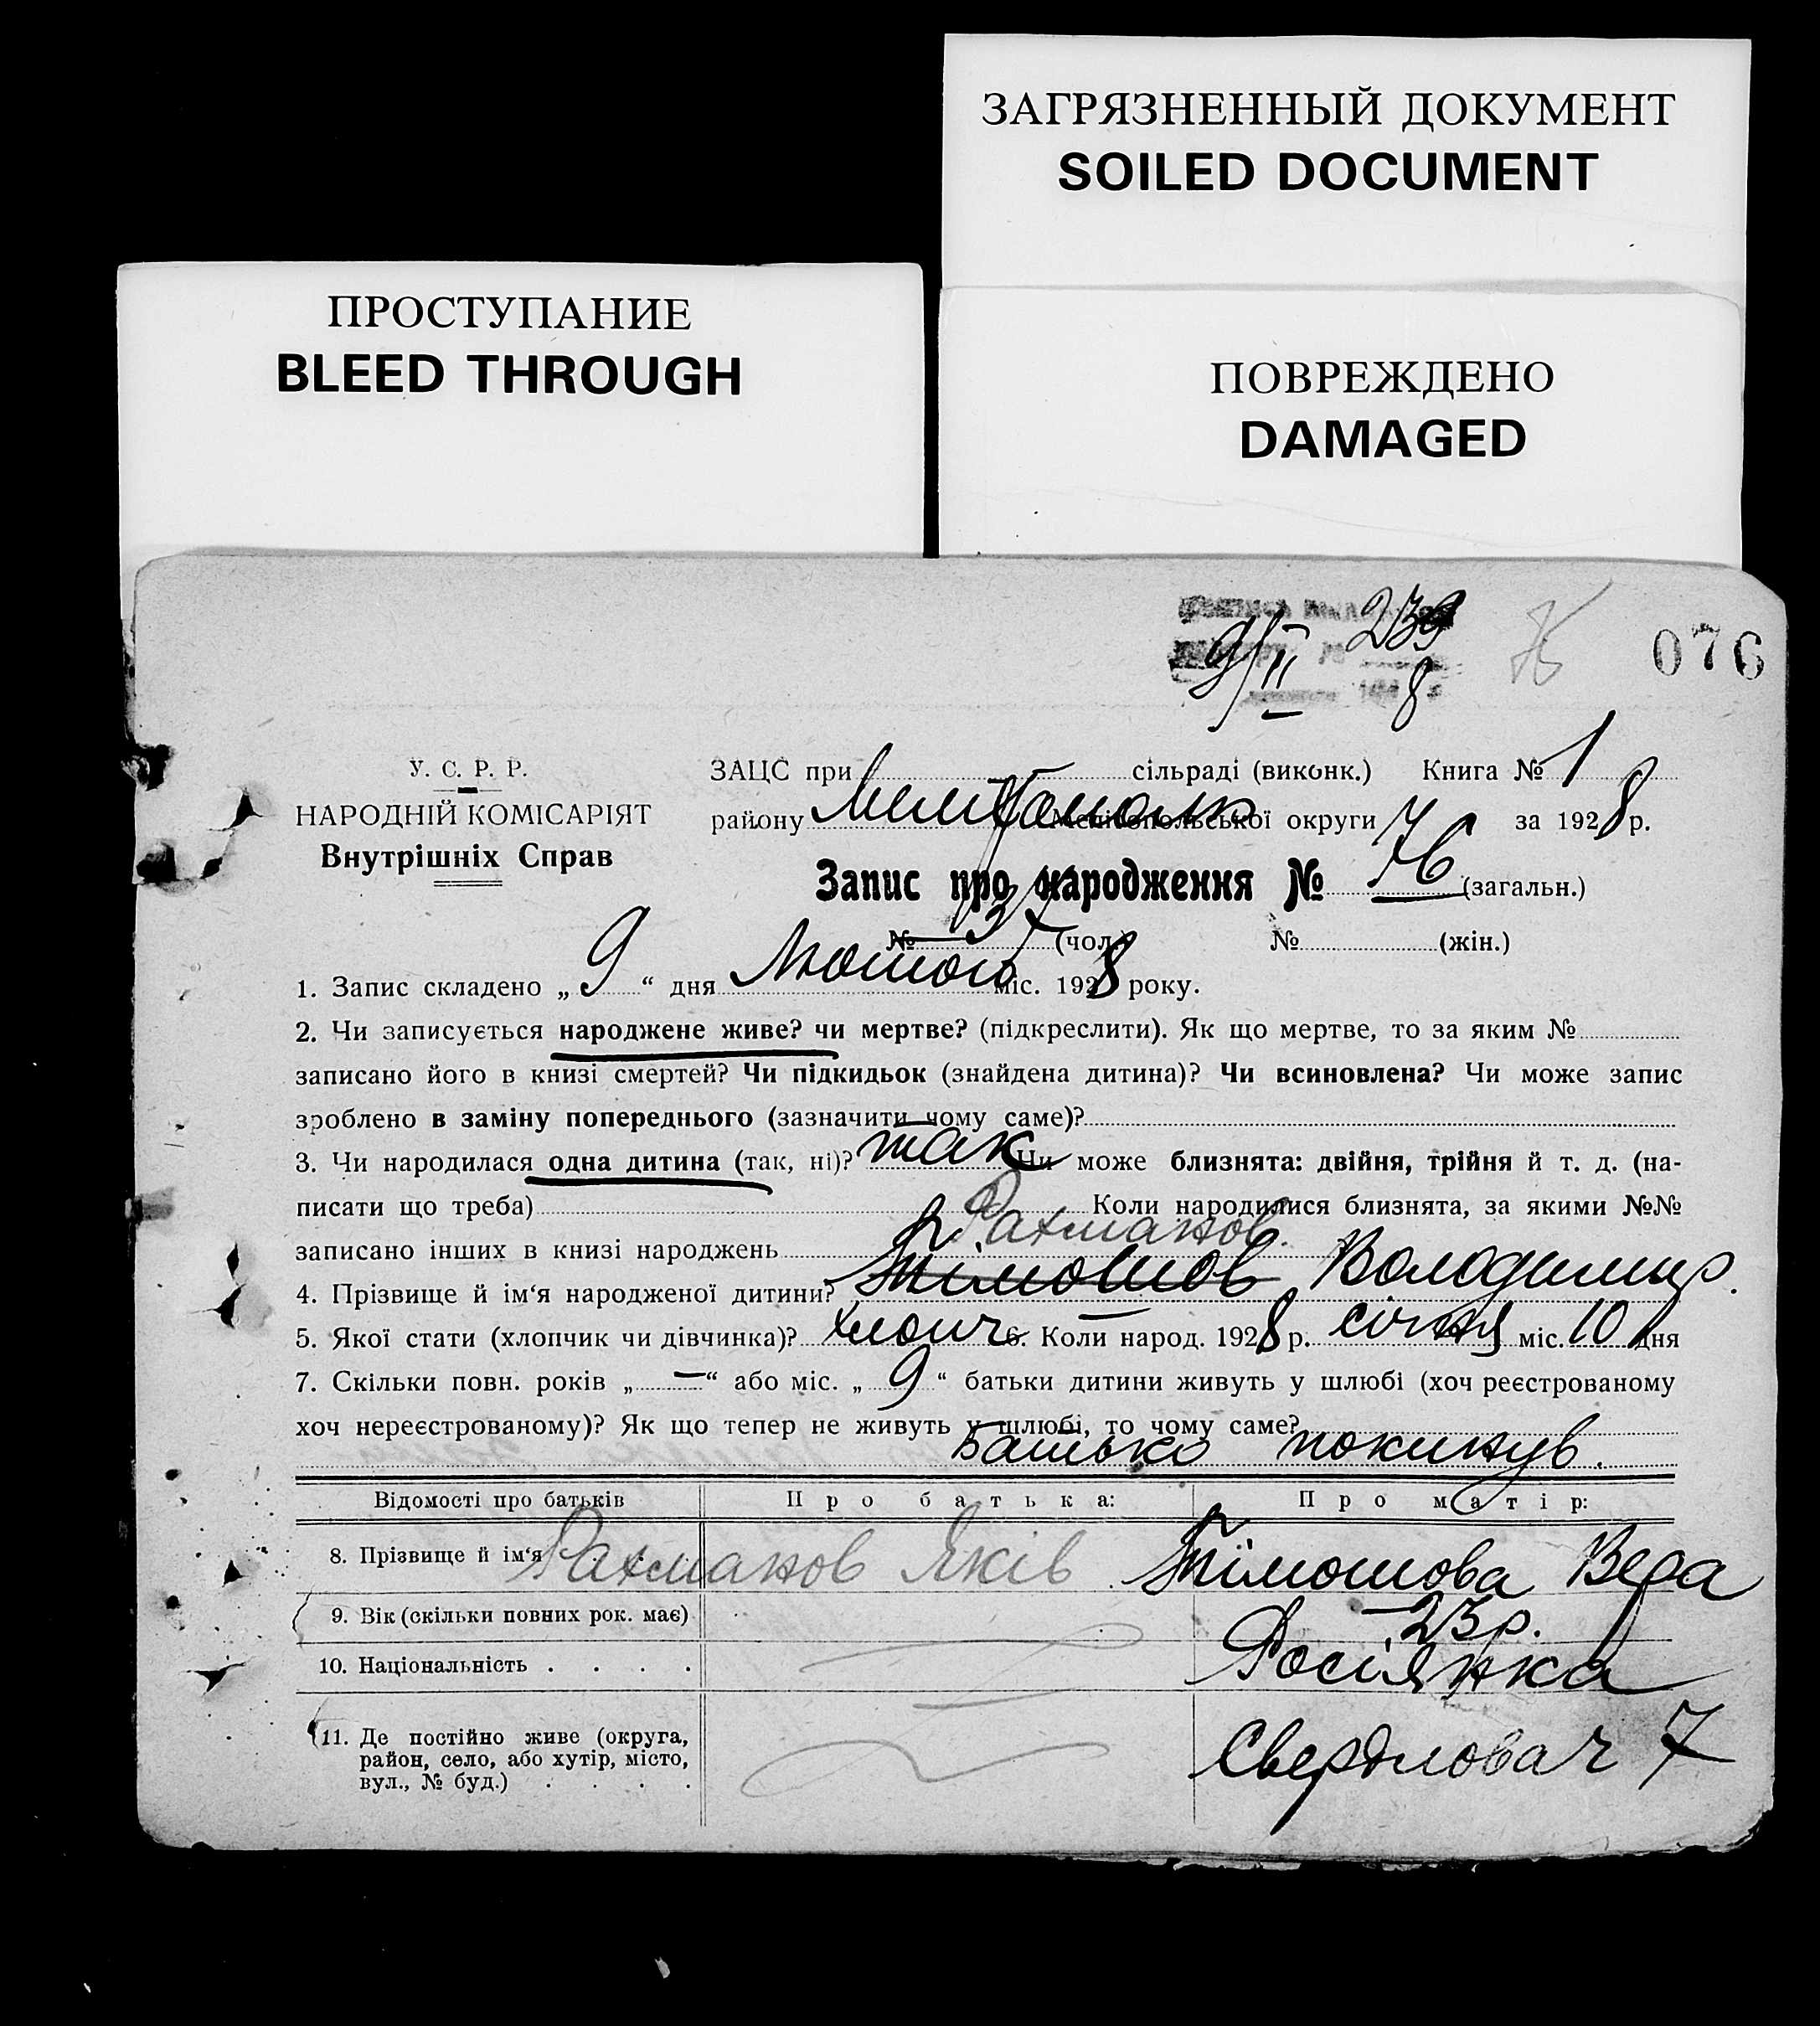 ЗАГРЯЗНЕННЫЙ ДОКУМЕНТ
SOILED DOCUMENT
ПРОСТУПАНИЕ
BLEED THROUGH
ПОВРЕЖДЕНО
DAMAGED
239
9/II 8
76
076
У. С. Р. Р.
НАРОДНІЙ КОМІСАРІЯТ
Внутрішніх Справ
ЗАЦС при сільраді (виконк.) Книга № 1
району Мелітопольської округи за 1928 р.
Запис про народження № 76 (загальн.)
№ 37 (чол.) № (жін.)
1. Запис складено „ 9 “ дня Лютого міс. 1928 року.
2. Чи записується народжене живе? чи мертве? (підкреслити). Як що мертве, то за яким №
записано його в книзі смертей? Чи підкидьок (знайдена дитина)? Чи всиновлена? Чи може запис
зроблено в заміну попереднього (зазначити чому саме)?
3. Чи народилася одна дитина (так, ні)? так Чи може близнята: двійня, трійня й т. д. (на-
писати що треба) Коли народилися близнята, за якими №№
записано інших в книзі народжень Рахманов.
4. Прізвище й ім‘я народженої дитини? Тімошов Володимир.
5. Якої стати (хлопчик чи дівчинка)? хлопч 6. Коли народ. 1928 р. січня міс. 10 дня
7. Скільки повн. років „ — “ або міс. „ 9 “ батьки дитини живуть у шлюбі (хоч реєстрованому
хоч нереєстрованому)? Як що тепер не живуть у шлюбі, то чому саме?
Батько покинув.
Відомості про батьків Про батька: Про матір:
8. Прізвище й ім‘я Рахманов Яків Тімошова Вера
9. Вік (скільки повних рок. має) 23 р.
10. Національність . . . . Росіянка
11. Де постійно живе (округа,
район, село, або хутір, місто,
вул., № буд.) . . . . Свердлова ч 7